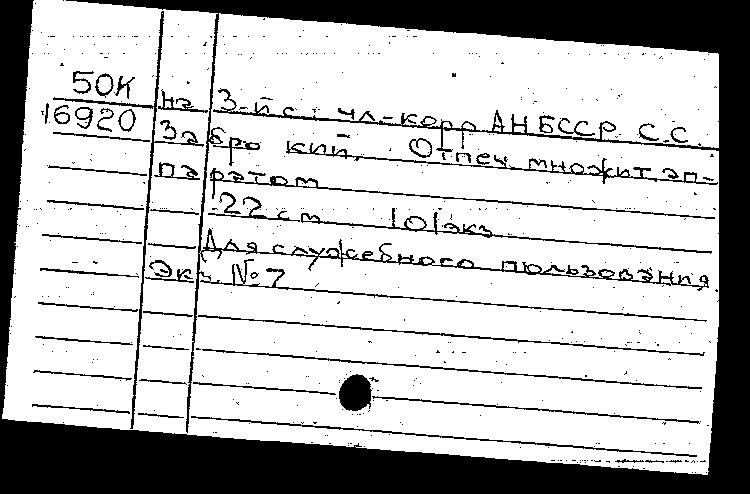 50К
на 3-й с.: чл-корр АН БССР С.С.
16920
Забро кий. Отпеч множит. ап-
паратом
22 см 101 экз
Для служебного пользования
Экз. № 7